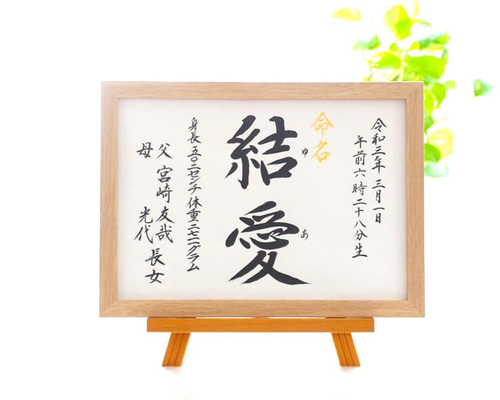 令和三年 三月一日
午前六時二十八分生
命名
結愛
ゆ
あ
身長 五〇・二センチ 体重 二七二一グラム
父 宮崎 友哉
母 光代 長女